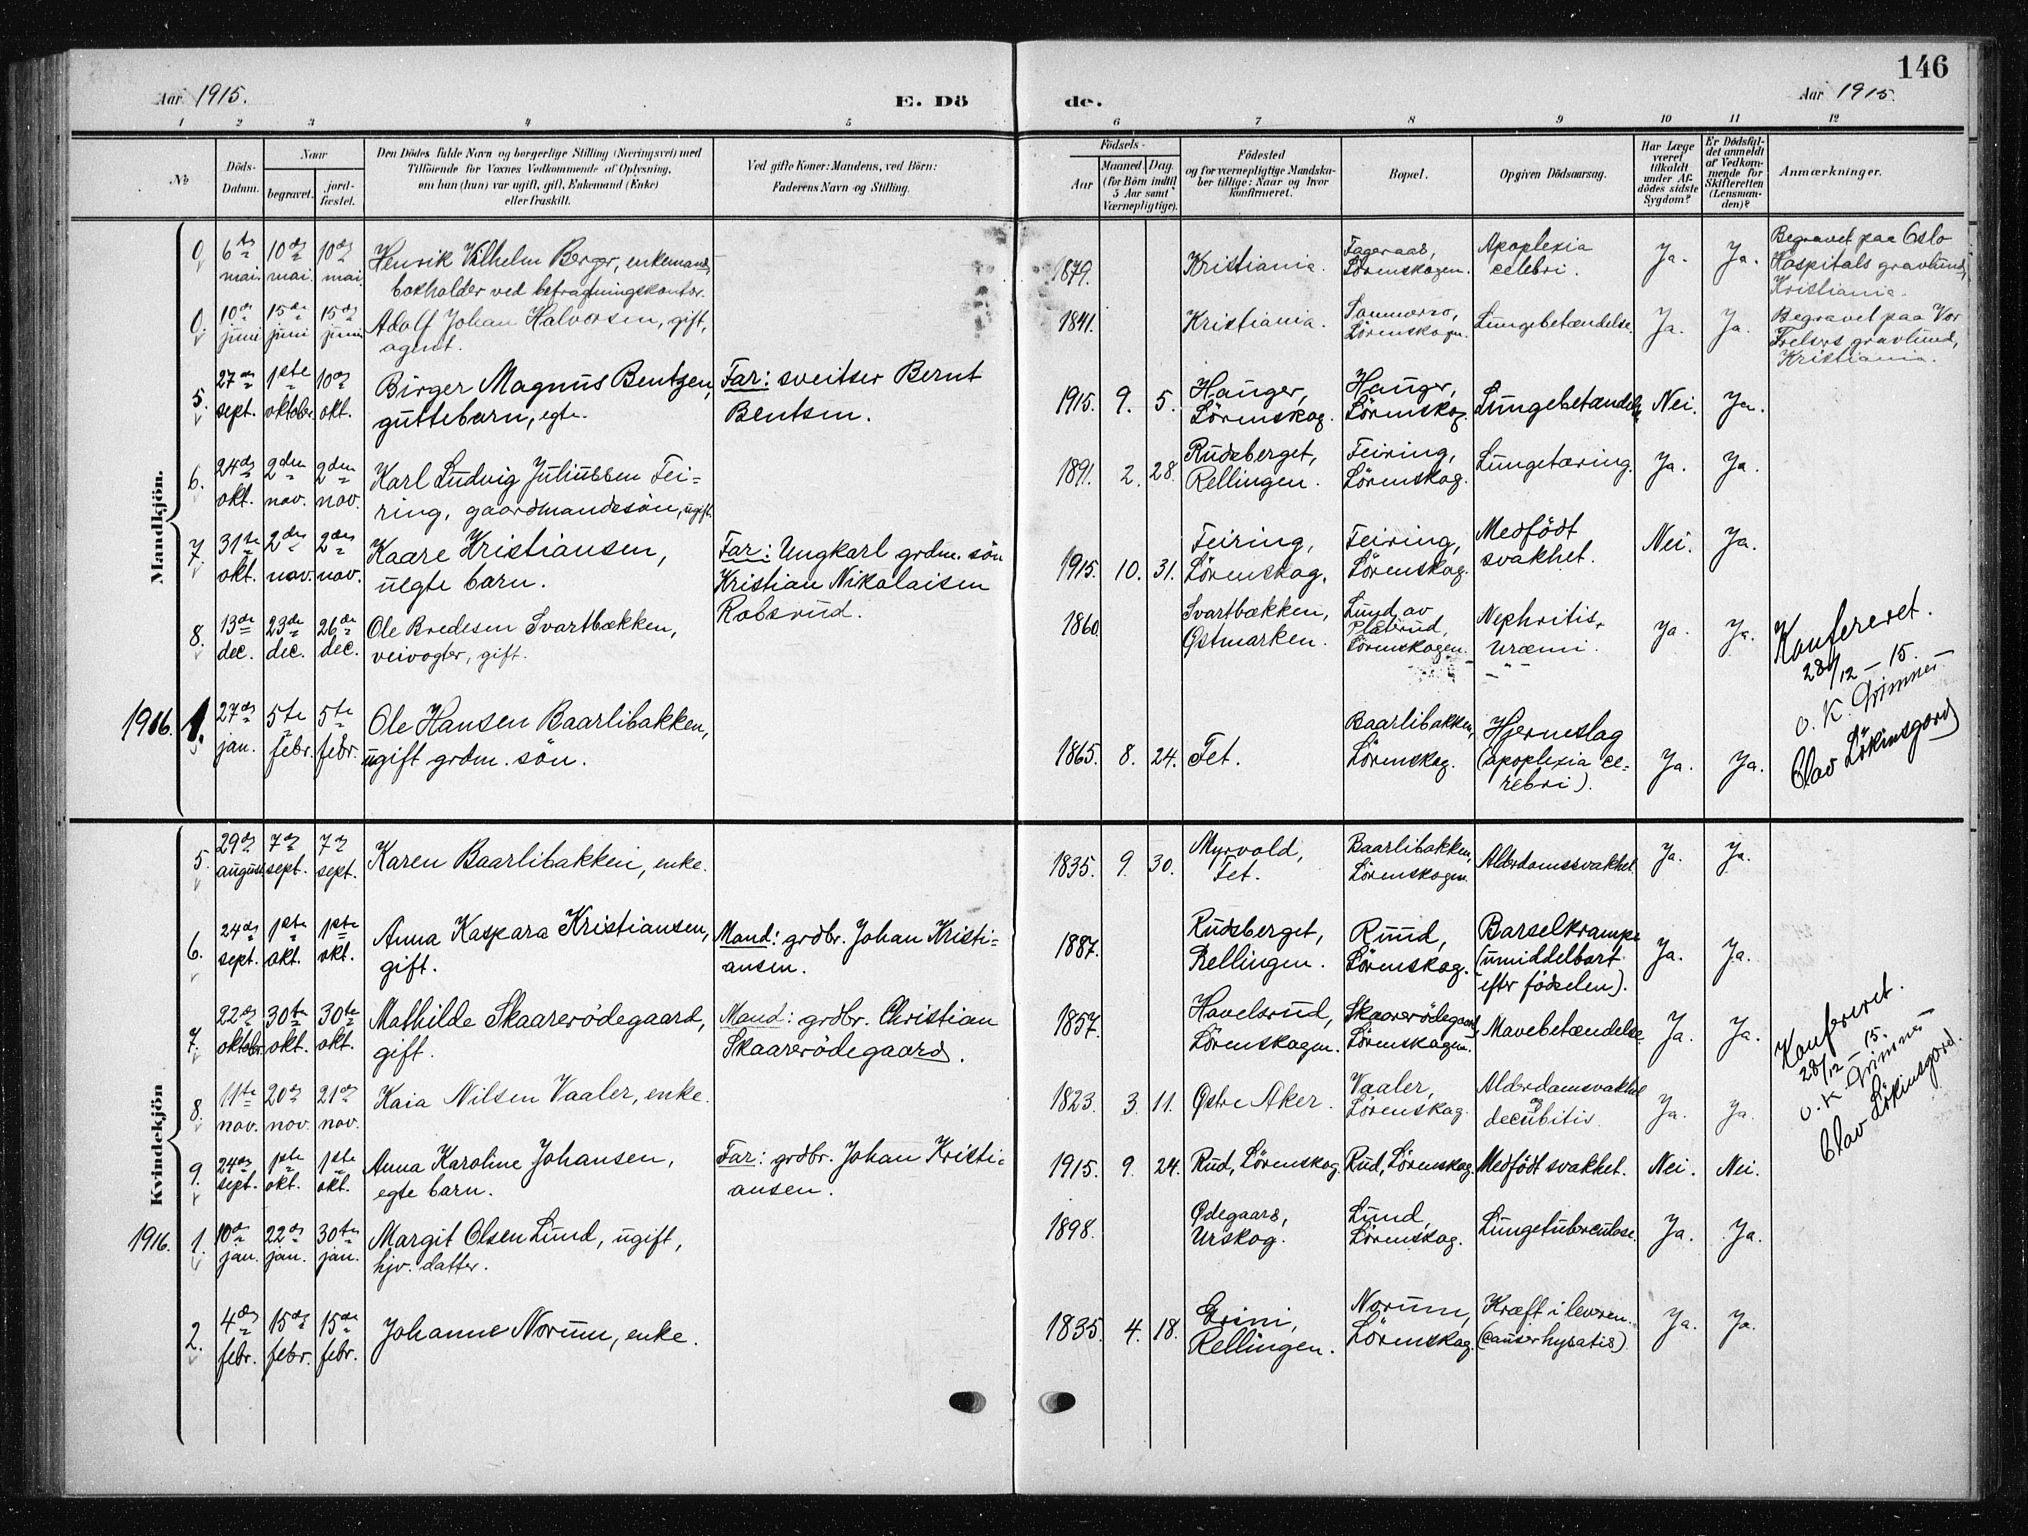 146
Aar 1915.
E. Dö
de.
Aar 1915.
1 2 3 4 5 6 7 8 9 10 11 12
No
Döds-Datum.
Naar
begravet.
jord-fæstet.
Den Dödes fulde Navn og borgerlige Stilling (Næringsvei) med
Tilföiende for Voxnes Vedkommende af Oplysning,
om han (hun) var ugift, gift, Enkemand (Enke)
eller fraskilt.
Ved gifte Koner: Mandens, ved Börn:
Faderens Navn og Stilling.
Födsels-
Aar
Maaned. Dag.
(for Börn indtil
5 Aar samt
Værnepligtige).
Födested
og for værnepligtige Mandska-
ber tillige: Naar og hvor
konfirmeret.
Bopæl.
Opgiven Dödsaarsag.
Har Læge
været
tilkaldt
under Af-
dödes sidste
Sygdom?
Er Dödsfal-
det anmeldt
af Vedkom-
mende for
Skifteretten
(Lensman-
den)?
Anmærkninger.
Mandkjön.
0. 6te mai. 10de mai. 10de mai. Henrik Vilhelm Berger, enkemand, 1879. Kristiania. Fageraas, Lörenskogen. Apoplexia celebri. Ja. Ja. Begravet paa Oslo
bokholder ved befragtningskontor. Hospitals gravlund,
Kristiania.
0. 10de juni 15de juni 15de juni Adolf Johan Halvorsen, gift, 1841. Kristiania. Lörenskogen. Lungebetændelse. Ja. Ja. Begravet paa Vor
agent. Frelsers gravlund,
Kristiania.
5. 27de sept. 1ste oktober. 10de okt. Birger Magnus Bentzen, Far: sveitser Bernt 1915. 9. 5. Hauger, Hauger, Lungebetændelse Nei. Ja.
guttebarn, egte. Bentsen. Lörenskog. Lörenskog.
6. 24de okt. 2den nov. 2den nov. Karl Ludvig Juliussen Fei- 1891. 2. 28. Rudsberget, Feiring, Lungetæring. Ja. Ja.
ring, gaardmandssön, ugift. Rellingen. Lörenskog.
7. 31te okt. 2den nov. 2den nov. Kaare Kristiansen, Far: Ungkarl grdm. sön 1915. 10. 31. Feiring, Feiring, Medfödt Nei. Ja.
uegte barn. Kristian Nikolaisen Lörenskog. Lörenskog. svakhet.
Robsrud.
8. 13de dec. 23de dec. 26de dec. Ole Bredesen Svartbækken, 1860. Svartbækken, Lund av Nephritis, Ja. Ja.
veivogter, gift. Østmarken. Lörenskogen. Uræmi.
Konfereret.
28/12 – 15.
O. K. Grimnes
Olav Lökinsgard
1916. 1. 27de jan. 5te febr. 5te febr. Ole Hansen Baarlibakken, 1865. 8. 24. Fet. Baarlibakken, Hjerneslag Ja. Ja.
ugift grdm. sön. Lörenskog. (apoplexia ce-
rebri).
Kvindekjön
5. 29de august 7de sept. 7de sept. Karen Baarlibakken, enke. 1835. 9. 30. Myrvold, Baarlibakken, Alderdomssvakhet. Ja. Ja.
Fet. Lörenskogen.
6. 24de sept. 1ste okt. 1ste okt. Anna Kaspara Kristiansen, Mand: grdbr. Johan Kristi- 1887. Rudsberget, Ruud, Barselkrampe Ja. Ja.
gift. ansen. Rellingen. Lörenskog. (umiddelbart
efter födselen).
7. 22de oktober 30te okt. 30te okt. Mathilde Skaarerödegaard, Mand: grdbr. Christian 1857. Havelsrud, Skaarerödegaard, Mavebetændelse. Ja. Ja.
gift. Skaarerödegaard. Lörenskogen. Lörenskogen.
Konfereret.
28/12 – 15.
O. K. Grimnes
Olav Lökinsgard.
8. 11te nov. 20de nov. 21de nov. Kaia Nilsen Vaaler, enke. 1823. 3. 11. Østre Aker. Vaaler, Alderdomsvakhet Ja. Ja.
Lörenskog. og decubitis.
9. 24de sept. 1ste okt. 1ste okt. Anna Karoline Johansen, Far: grdbr. Johan Kristi- 1915. 9. 24. Rud, Lörenskog. Rud, Lörenskog. Medfödt svakhet. Nei. Nei.
egte barn. ansen.
1916. 1. 10de jan. 22de jan. 30te jan. Margit Olsen Lund, ugift, 1898. Ødegaard, Lund, Lungetuberculose. Ja. Ja.
hjv. datter. Urskog. Lörenskog.
2. 4de febr. 15de febr. 15de febr. Johanne Norum, enke. 1835. 4. 18. Grini, Norum, Kræft i leveren. Ja. Ja.
Rellingen. Lörenskog. (cancer hypatis)